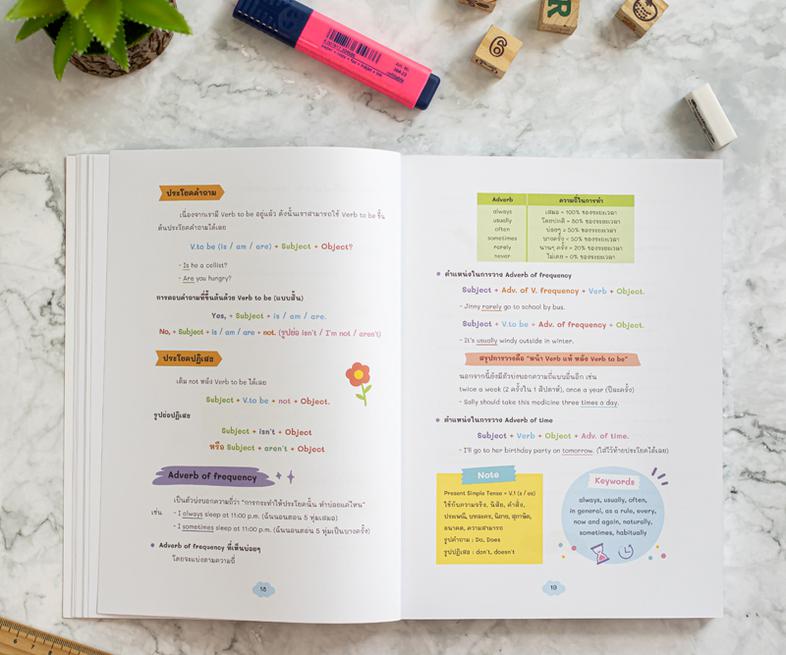 ประโยคคำถาม
เนื่องจากเรามี Verb to be อยู่แล้ว ดังนั้นเราสามารถใช้ Verb to be ขึ้น
ต้นประโยคคำถามได้เลย
V.to be (is / am / are) + Subject + Object?
- Is he a cellist?
- Are you hungry?
การตอบคำถามที่ขึ้นต้นด้วย Verb to be (แบบสั้น)
Yes, + Subject + is / am / are.
No, + Subject + is / am / are + not. (รูปย่อ isn't / I'm not / aren't)
ประโยคปฏิเสธ
เติม not หลัง Verb to be ได้เลย
Subject + V.to be + not + Object.
รูปย่อปฏิเสธ
Subject + isn't + Object
หรือ Subject + aren't + Object
Adverb of frequency
เป็นตัวบ่งบอกความถี่ว่า "การกระทำให้ประโยคนั้น ทำบ่อยแค่ไหน"
เช่น - I always sleep at 11:00 p.m. (ฉันนอนตอน 5 ทุ่มเสมอ)
- I sometimes sleep at 11:00 p.m. (ฉันนอนตอน 5 ทุ่มเป็นบางครั้ง)
Adverb of frequency ที่เห็นบ่อยๆ
โดยจะแบ่งตามความถี่
18
Adverb ความถี่ในการทำ
always เสมอ = 100% ของระยะเวลา
usually โดยปกติ = 80% ของระยะเวลา
often บ่อยๆ = 50% ของระยะเวลา
sometimes บางครั้ง < 50% ของระยะเวลา
rarely นานๆ ครั้ง = 20% ของระยะเวลา
never ไม่เคย = 0% ของระยะเวลา
ตำแหน่งในการวาง Adverb of frequency
Subject + Adv. of V. frequency + Verb + Object.
- Jinny rarely go to school by bus.
Subject + V.to be + Adv. of frequency + Object.
- It's usually windy outside in winter.
สรุปการวางคือ "หน้า Verb แท้ หลัง Verb to be"
นอกจากนี้ยังมีตัวบ่งบอกความถี่แบบอื่นอีก เช่น
twice a week (2 ครั้งใน 1 สัปดาห์), once a year (ปีละครั้ง)
- Sally should take this medicine three times a day.
ตำแหน่งในการวาง Adverb of time
Subject + Verb + Object + Adv. of time.
- I'll go to her birthday party on tomorrow. (ใส่ไว้ท้ายประโยคได้เลย)
Note
Present Simple Tense = V.1 (s / es)
ใช้กับความจริง, นิสัย, คำสั่ง,
ประเพณี, บทละคร, นิยาย, สุภาษิต,
อนาคต, ความสามารถ
รูปคำถาม : Do, Does
รูปปฏิเสธ : don't, doesn't
Keywords
always, usually, often,
in general, as a rule, every,
now and again, naturally,
sometimes, habitually
19
R
6